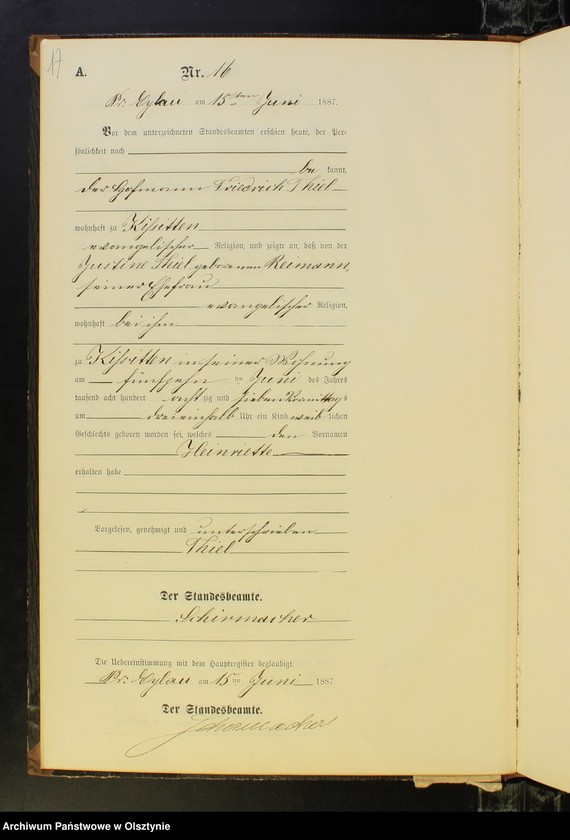 17
A. Nr. 16
Pr. Eylau am 15ten Juni 1887.
Vor dem unterzeichneten Standesbeamten erschien heute, der Per-
sönlichkeit nach
be kannt,
der Hofmann Friedrich Thiel
wohnhaft zu Kissitten
evangelischer Religion, und zeigte an, daß von der
Justine Thiel geborenen Reimann,
seiner Ehefrau
evangelischer Religion,
wohnhaft bei ihm
zu Kissitten in seiner Wohnung
am fünfzehn ten Juni des Jahres
tausend acht hundert acht zig und sieben Vormittags
um dreieinhalb Uhr ein Kind weib lichen
Geschlechts geboren worden sei, welches den Vornamen
Heinriette
erhalten habe
Vorgelesen, genehmigt und unterschrieben
Thiel
Der Standesbeamte.
Schirmacher
Die Uebereinstimmung mit dem Hauptregister beglaubigt.
Pr. Eylau am 15ten Juni 1887.
Der Standesbeamte.
Schirmacher
Archiwum Państwowe w Olsztynie